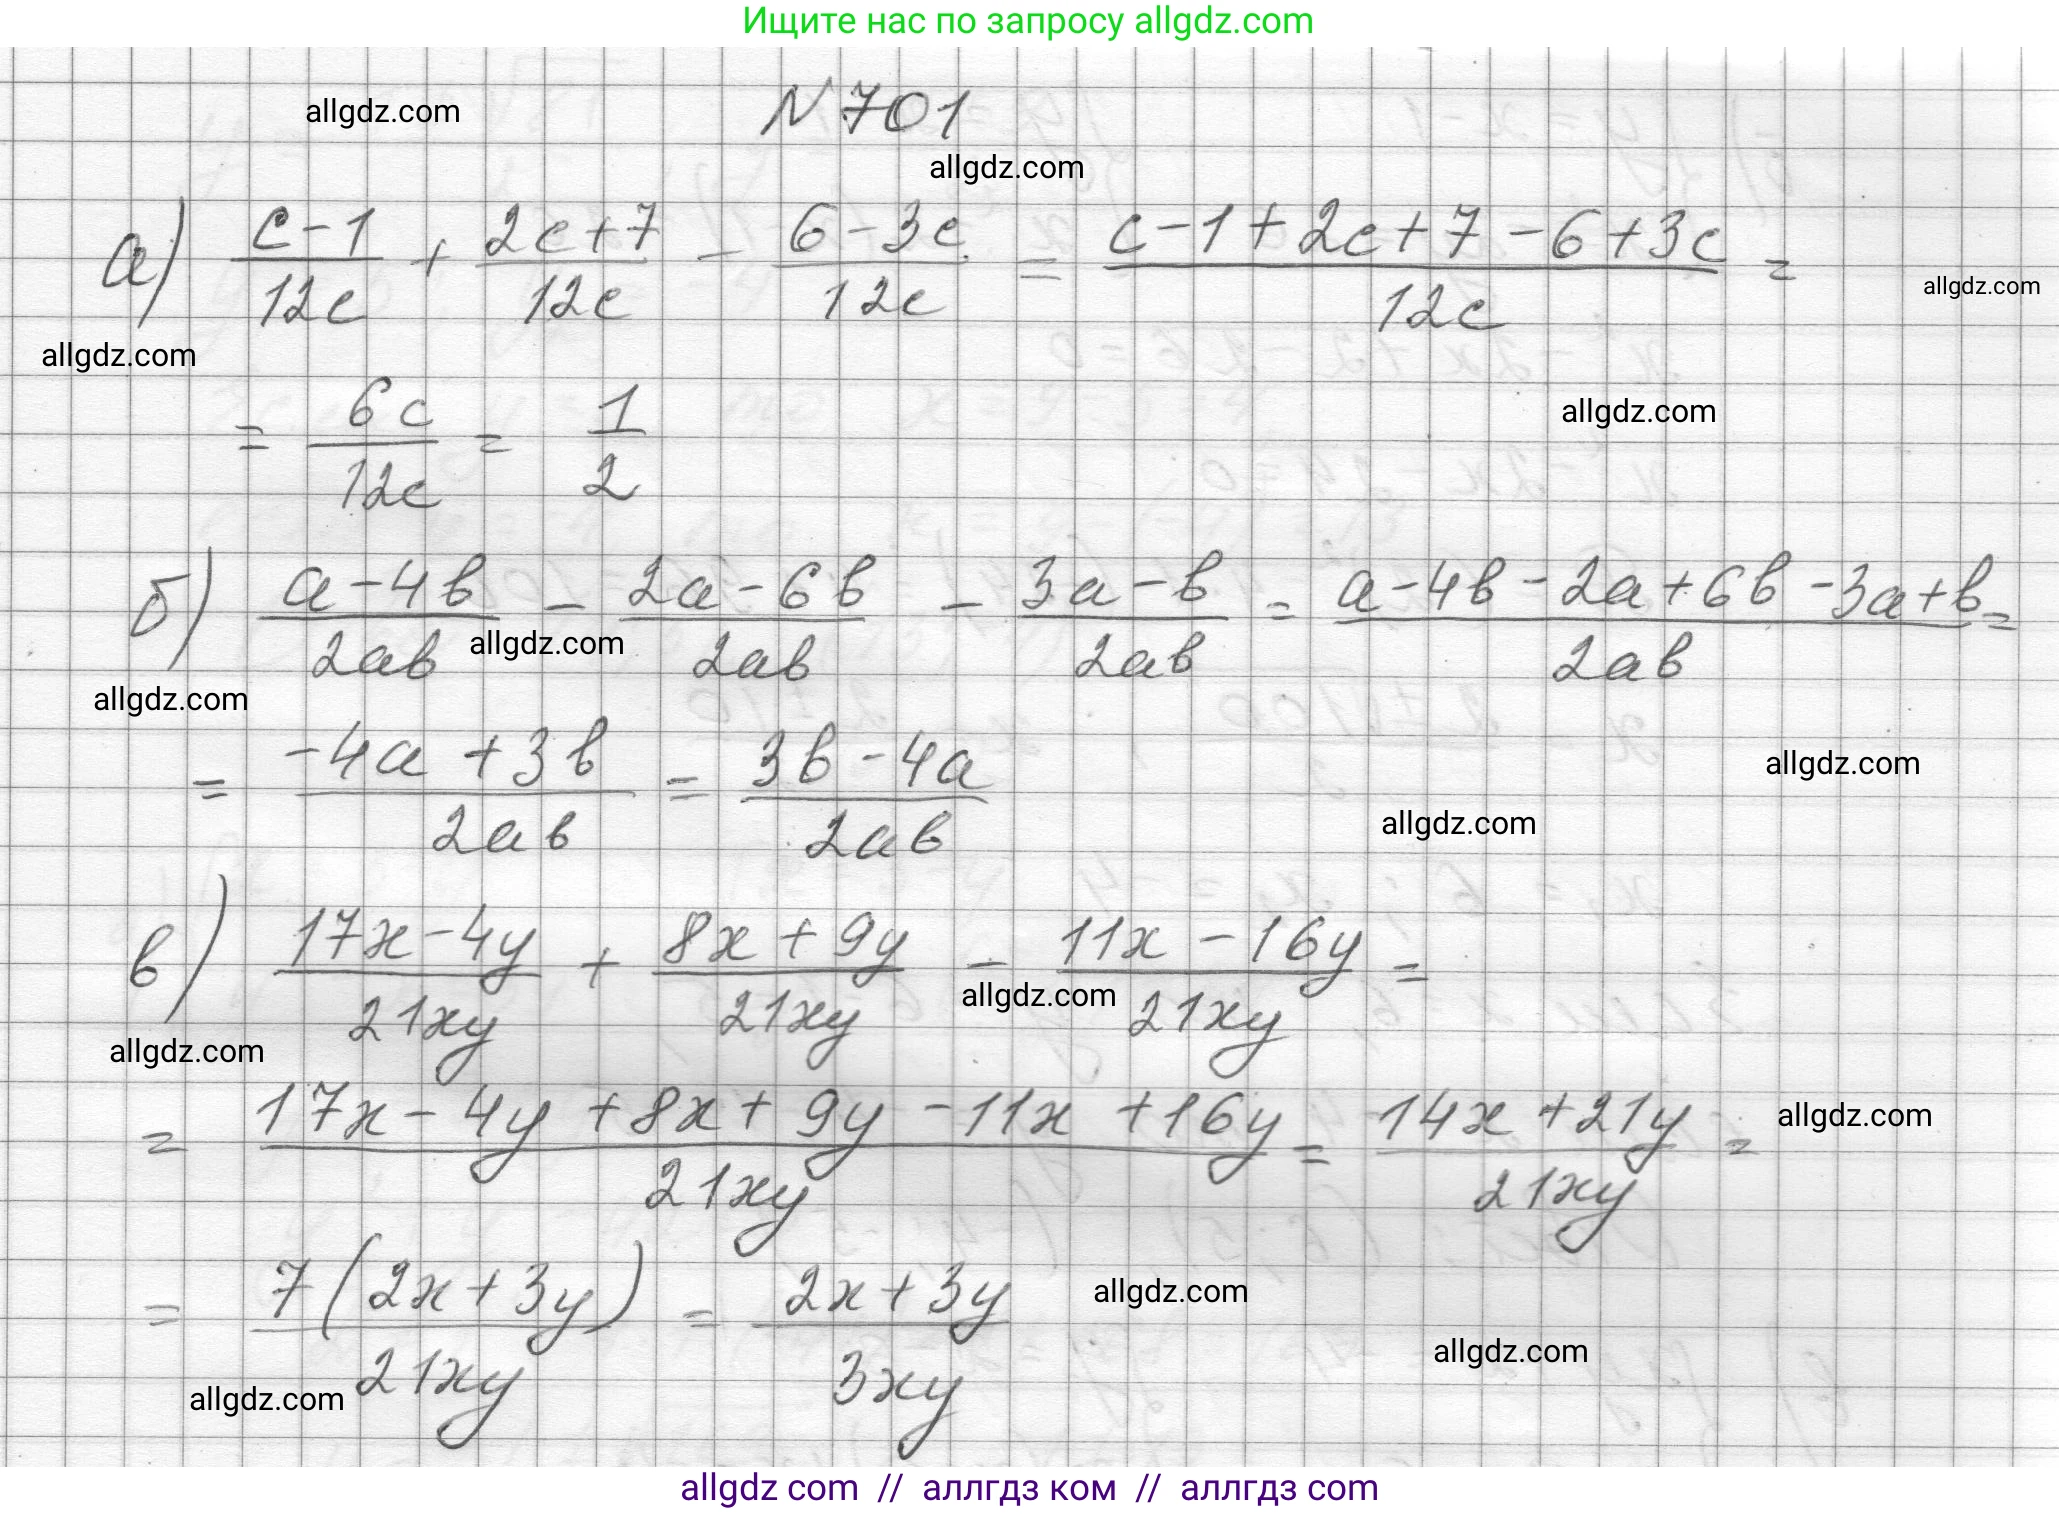 Ищите нас по запросу allgdz.com
allgdz.com
N 701
allgdz.com
а) (c-1)/(12c) + (2c+7)/(12c) - (6-3c)/(12c) = (c-1+2c+7-6+3c)/(12c) =
allgdz.com
allgdz.com
= (6c)/(12c) = 1/2
allgdz.com
б) (a-4b)/(2ab) - (2a-6b)/(2ab) - (3a-b)/(2ab) = (a-4b-2a+6b-3a+b)/(2ab) =
allgdz.com
allgdz.com
= (-4a+3b)/(2ab) = (3b-4a)/(2ab)
allgdz.com
allgdz.com
в) (17x-4y)/(21xy) + (8x+9y)/(21xy) - (11x-16y)/(21xy) =
allgdz.com
allgdz.com
= (17x-4y+8x+9y-11x+16y)/(21xy) = (14x+21y)/(21xy) =
allgdz.com
= (7(2x+3y))/(21xy) = (2x+3y)/(3xy)
allgdz.com
allgdz.com
allgdz.com
allgdz com // аллгдз ком // аллгдз com